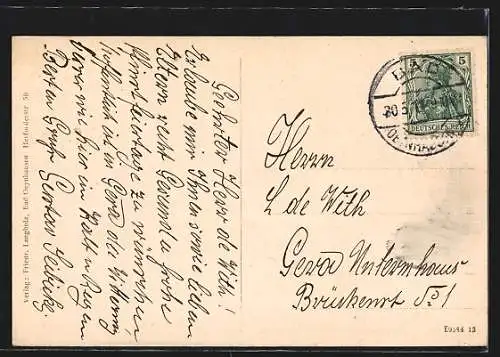 Geehrter Herr de With!
Erlaube mir Ihnen sowie lieben
Eltern recht Gesunde u frohe
Pfingstfeiertage zu wünschen
hoffentlich ist in Gera die Witterung
wie hier im
Besten Gruß Gustav
Verlag: Friedr. Langholz, Bad Oeynhausen Herforderstr 56
BAD
OEYNHAUSEN
5
DEUTSCHES REICH
Herrn
L de With
Gera Untermhaus
Brückenstr No 1
13